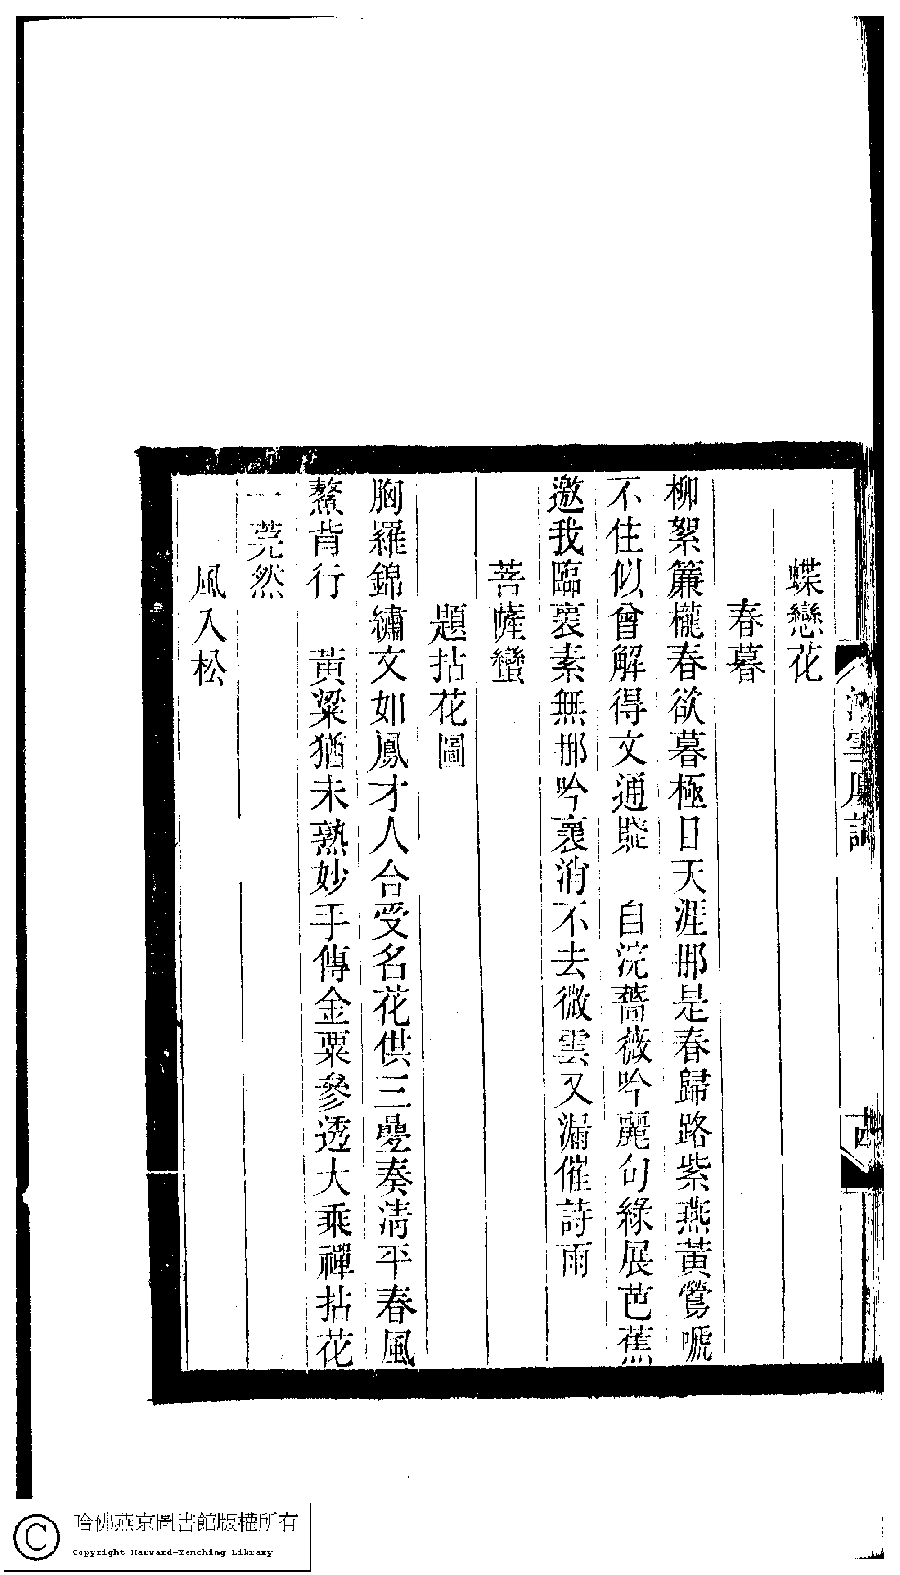 蝶戀花
春暮
柳絮簾櫳春欲暮極目天涯那是春歸路紫燕黃鶯嗁
不住似曾解得文通賦　自浣薔薇吟麗句綠展芭蕉
邀我臨褱素無那吟褱消不去微雲又漏催詩雨
菩薩蠻
題拈花圖
胸羅錦繡文如鳳才人合受名花供三疊奏清平春風
鰲背行　黃粱猶未熟妙手傳金粟參透大乘禪拈花
一莞然
風入松
哈佛燕京圖書館版權所有
Copyright Harvard-Yenching Library